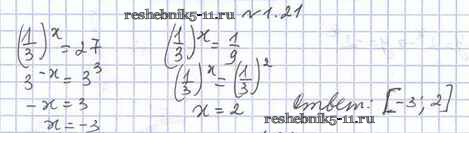 reshebnik5-11.ru №1.21
(1/3)^x = 27
3^-x = 3^3
-x = 3
x = -3
(1/3)^x = 1/9
(1/3)^x = (1/3)^2
x = 2
Ответ: [-3; 2]
reshebnik5-11.ru